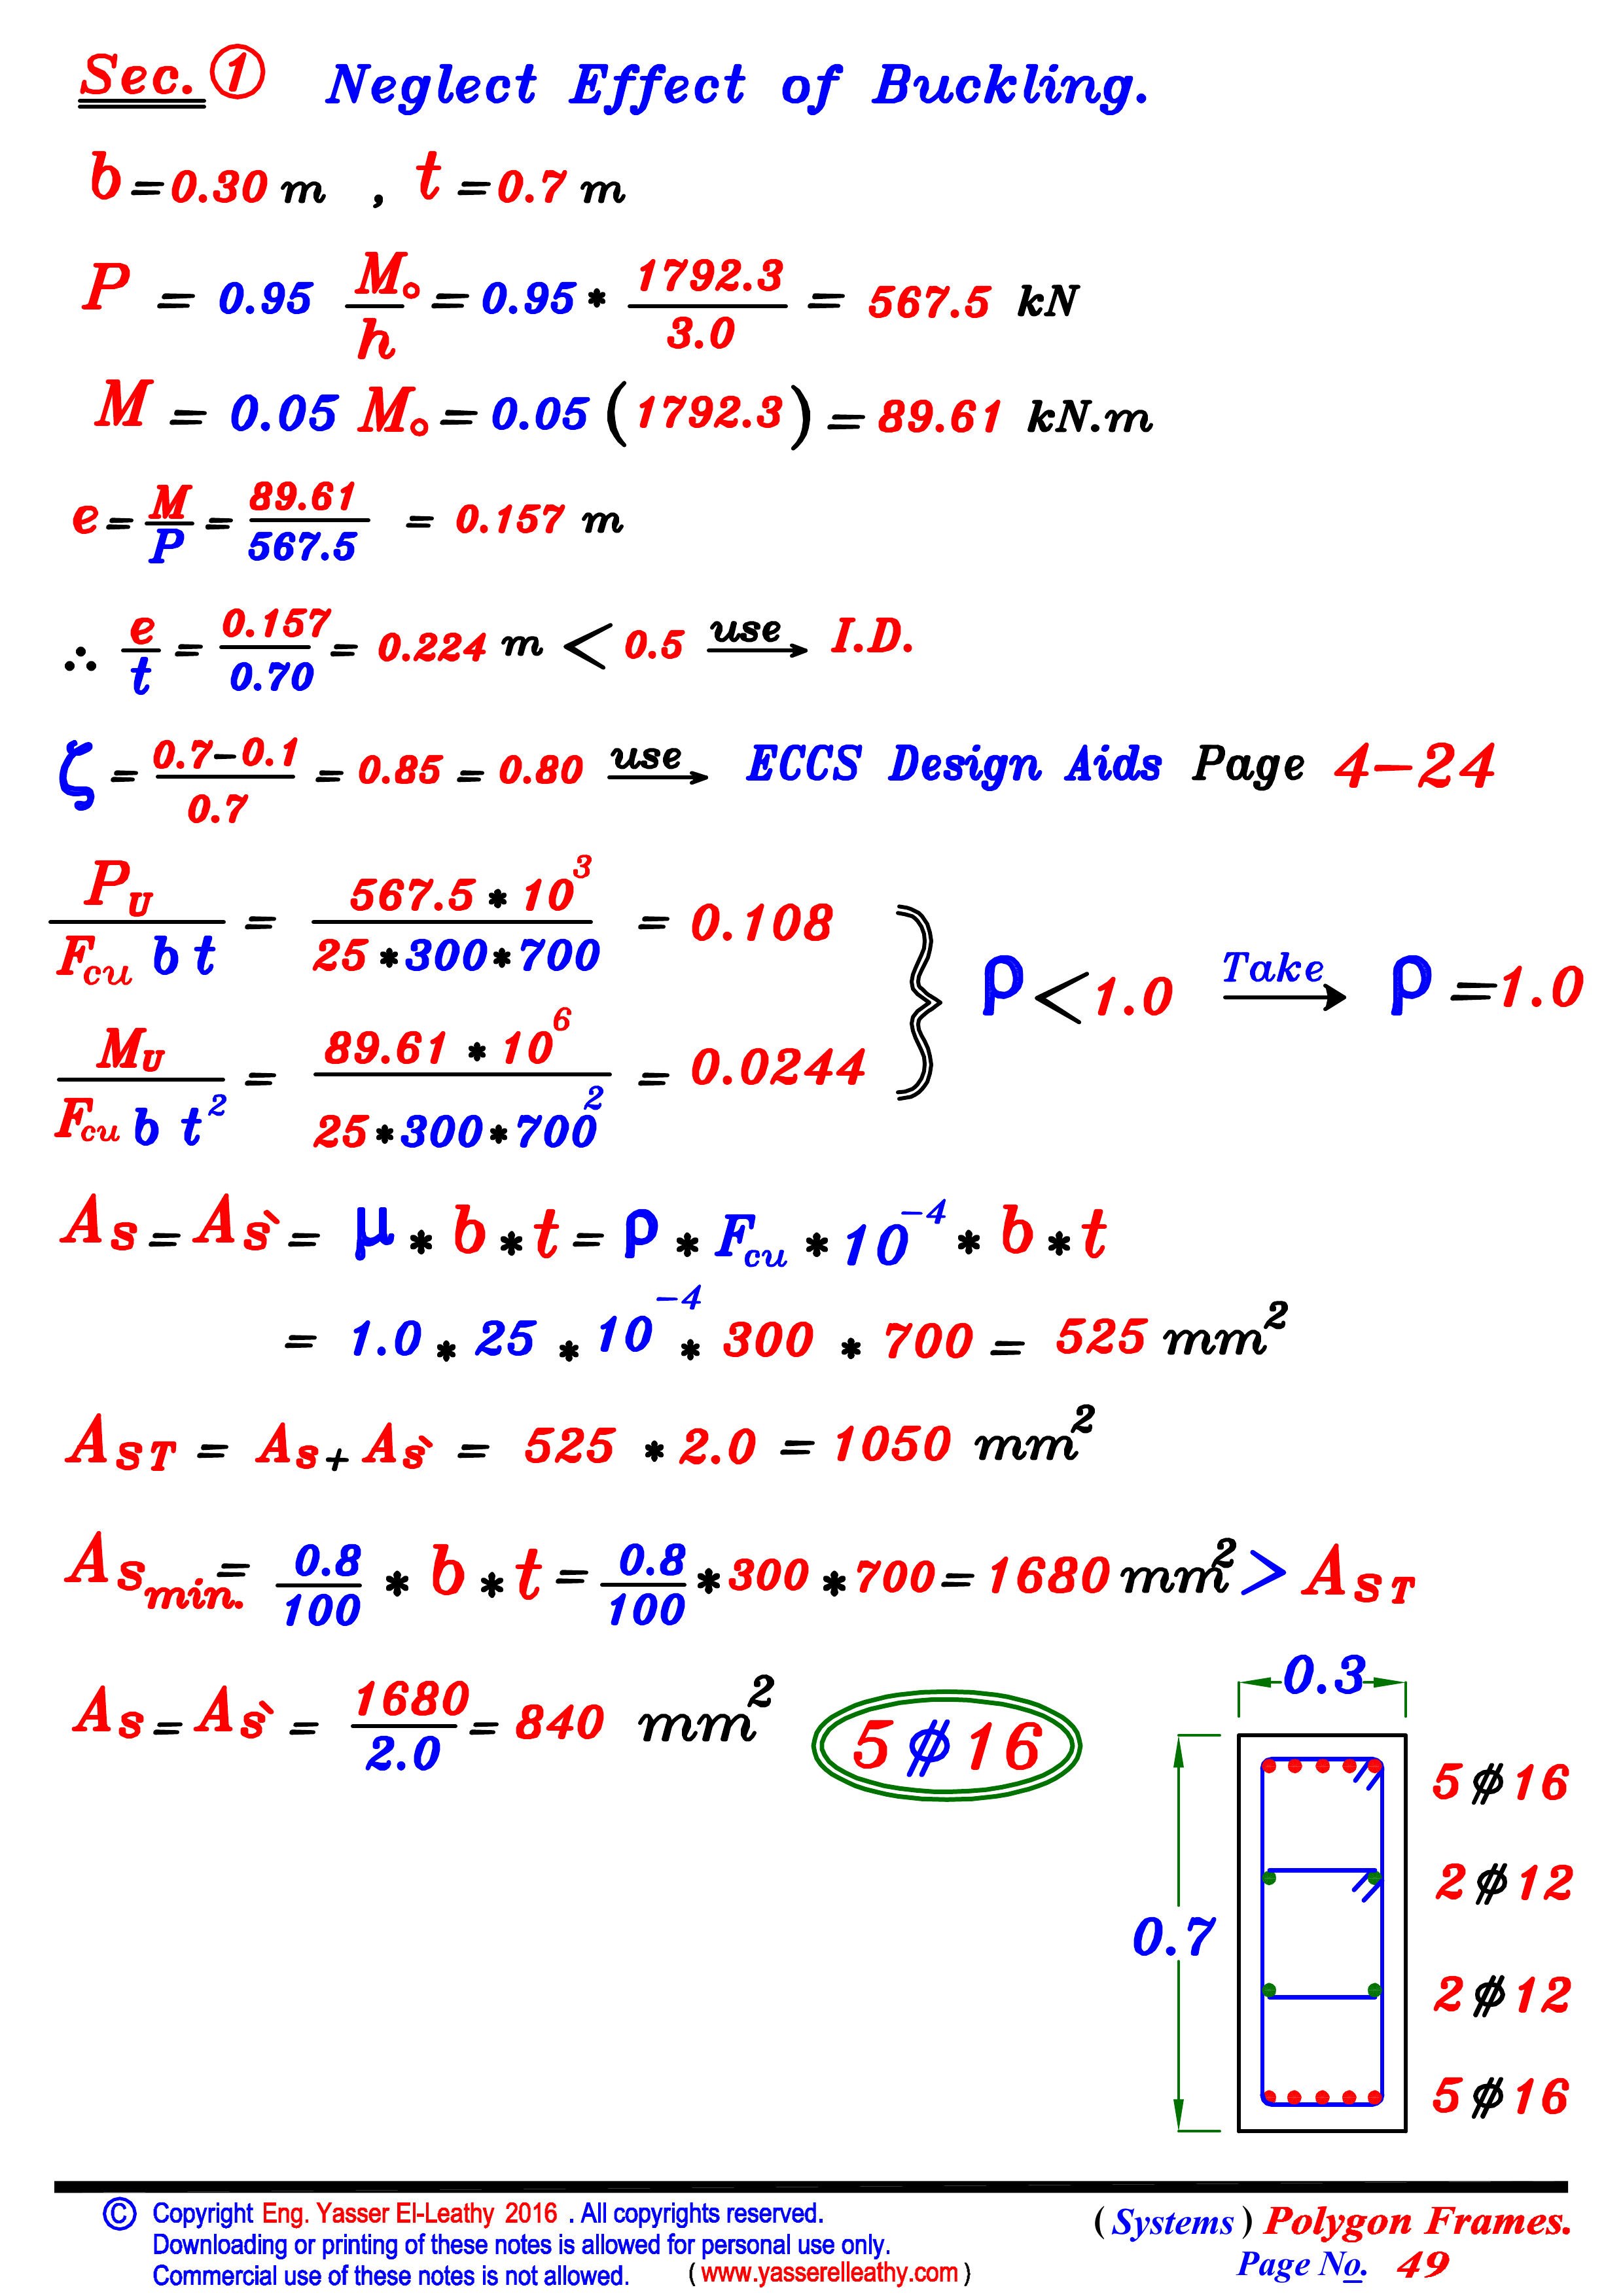 Sec. ① Neglect Effect of Buckling.
b = 0.30 m , t = 0.7 m
P = 0.95 M₀/h = 0.95 * 1792.3/3.0 = 567.5 kN
M = 0.05 M₀ = 0.05 (1792.3) = 89.61 kN.m
e = M/P = 89.61/567.5 = 0.157 m
∴ e/t = 0.157/0.70 = 0.224 m < 0.5 use → I.D.
ζ = 0.7-0.1/0.7 = 0.85 = 0.80 use → ECCS Design Aids Page 4-24
P_U/F_cu b t = 567.5 * 10³/25 * 300 * 700 = 0.108
ρ < 1.0 Take → ρ = 1.0
M_U/F_cu b t² = 89.61 * 10⁶/25 * 300 * 700² = 0.0244
As = As` = μ * b * t = ρ * F_cu * 10⁻⁴ * b * t
= 1.0 * 25 * 10⁻⁴ * 300 * 700 = 525 mm²
A_ST = As + As` = 525 * 2.0 = 1050 mm²
As_min. = 0.8/100 * b * t = 0.8/100 * 300 * 700 = 1680 mm² > A_ST
As = As` = 1680/2.0 = 840 mm² 5 ⌀ 16
0.3
0.7
5 ⌀ 16
2 ⌀ 12
2 ⌀ 12
5 ⌀ 16
© Copyright Eng. Yasser El-Leathy 2016 . All copyrights reserved.
Downloading or printing of these notes is allowed for personal use only.
Commercial use of these notes is not allowed. ( www.yasserelleathy.com )
( Systems ) Polygon Frames.
Page No. 49